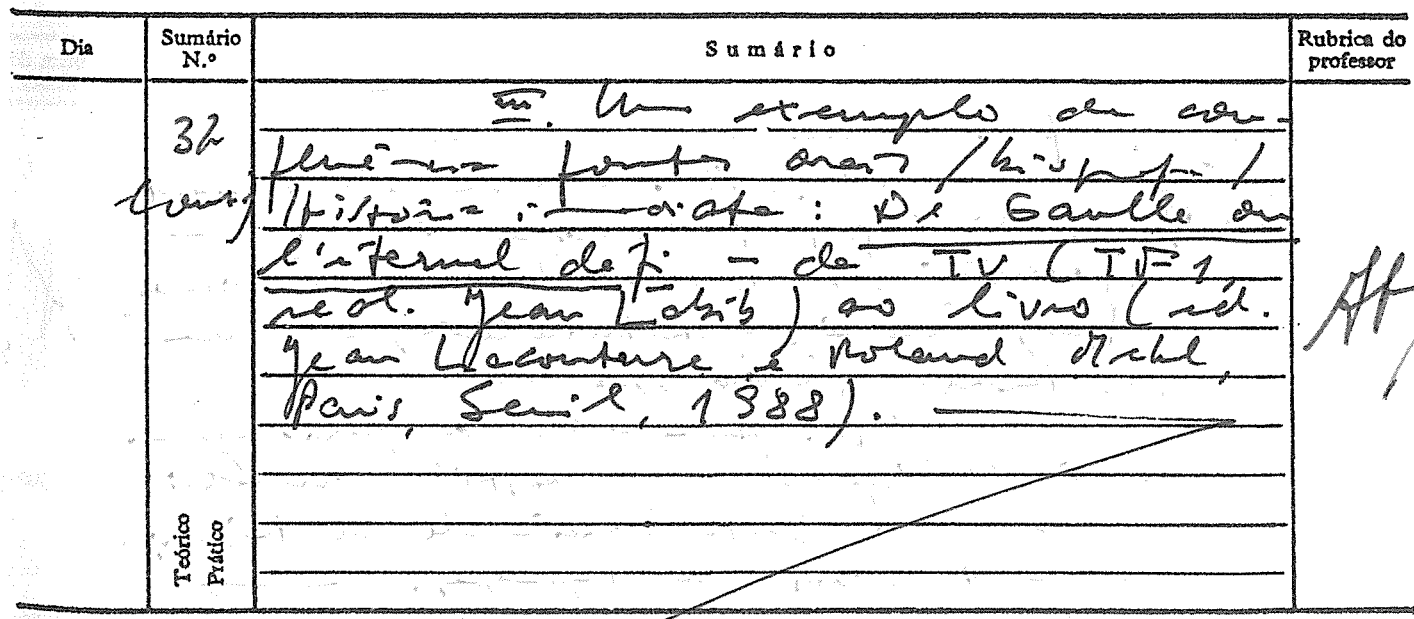 Dia Sumário N.º Sumário Rubrica do professor
32 III. Um exemplo de con-
fluência fontes orais / biografia /
(cont.) História imediata: De Gaulle ou
l'éternel défi - da TV (TF1,
real. Jean Labib) ao livro (ed.
Jean Lacouture e Roland Mehl,
Paris, Seuil, 1988).
Teórico
Prático